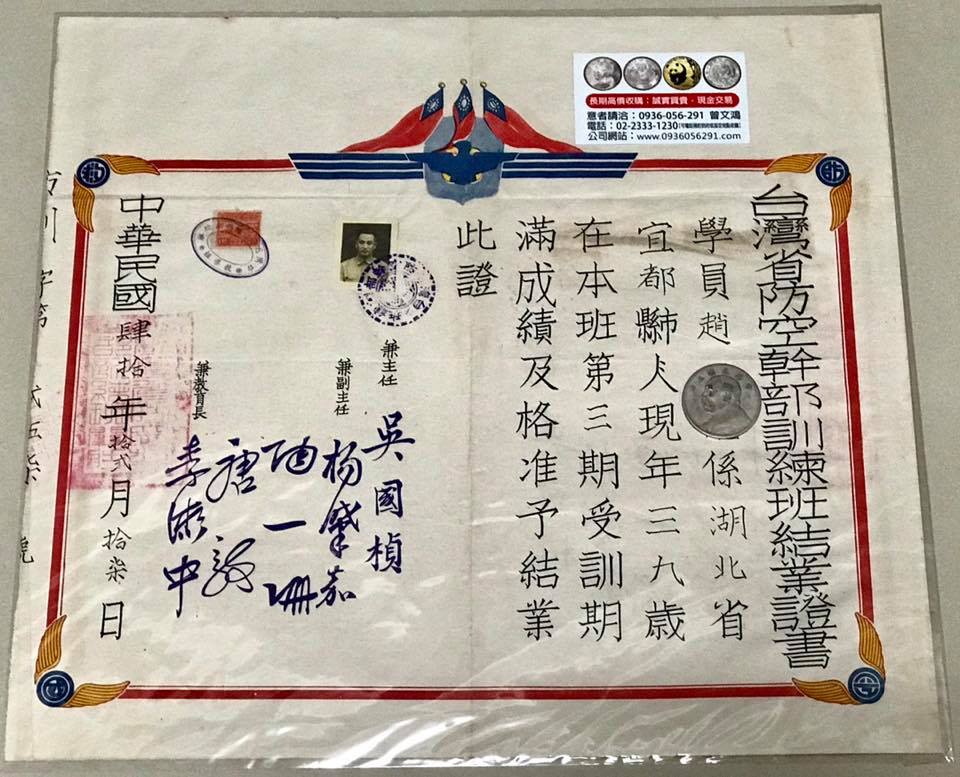 長期高價收購：誠實買賣‧現金交易
意者請洽：0936-056-291 曾文鴻
電話：02-2333-1230
公司網站：www.0936056291.com
台灣省防空幹部訓練班結業證書
學員趙 係湖北省
宜都縣人現年三九歲
在本班第三期受訓期
滿成績及格准予結業
此證
兼主任 吳國楨
兼副主任 楊肇嘉
陶一珊
唐
兼教育長 李
中華民國肆拾年拾弍月拾柒日
字第 弍伍柒號